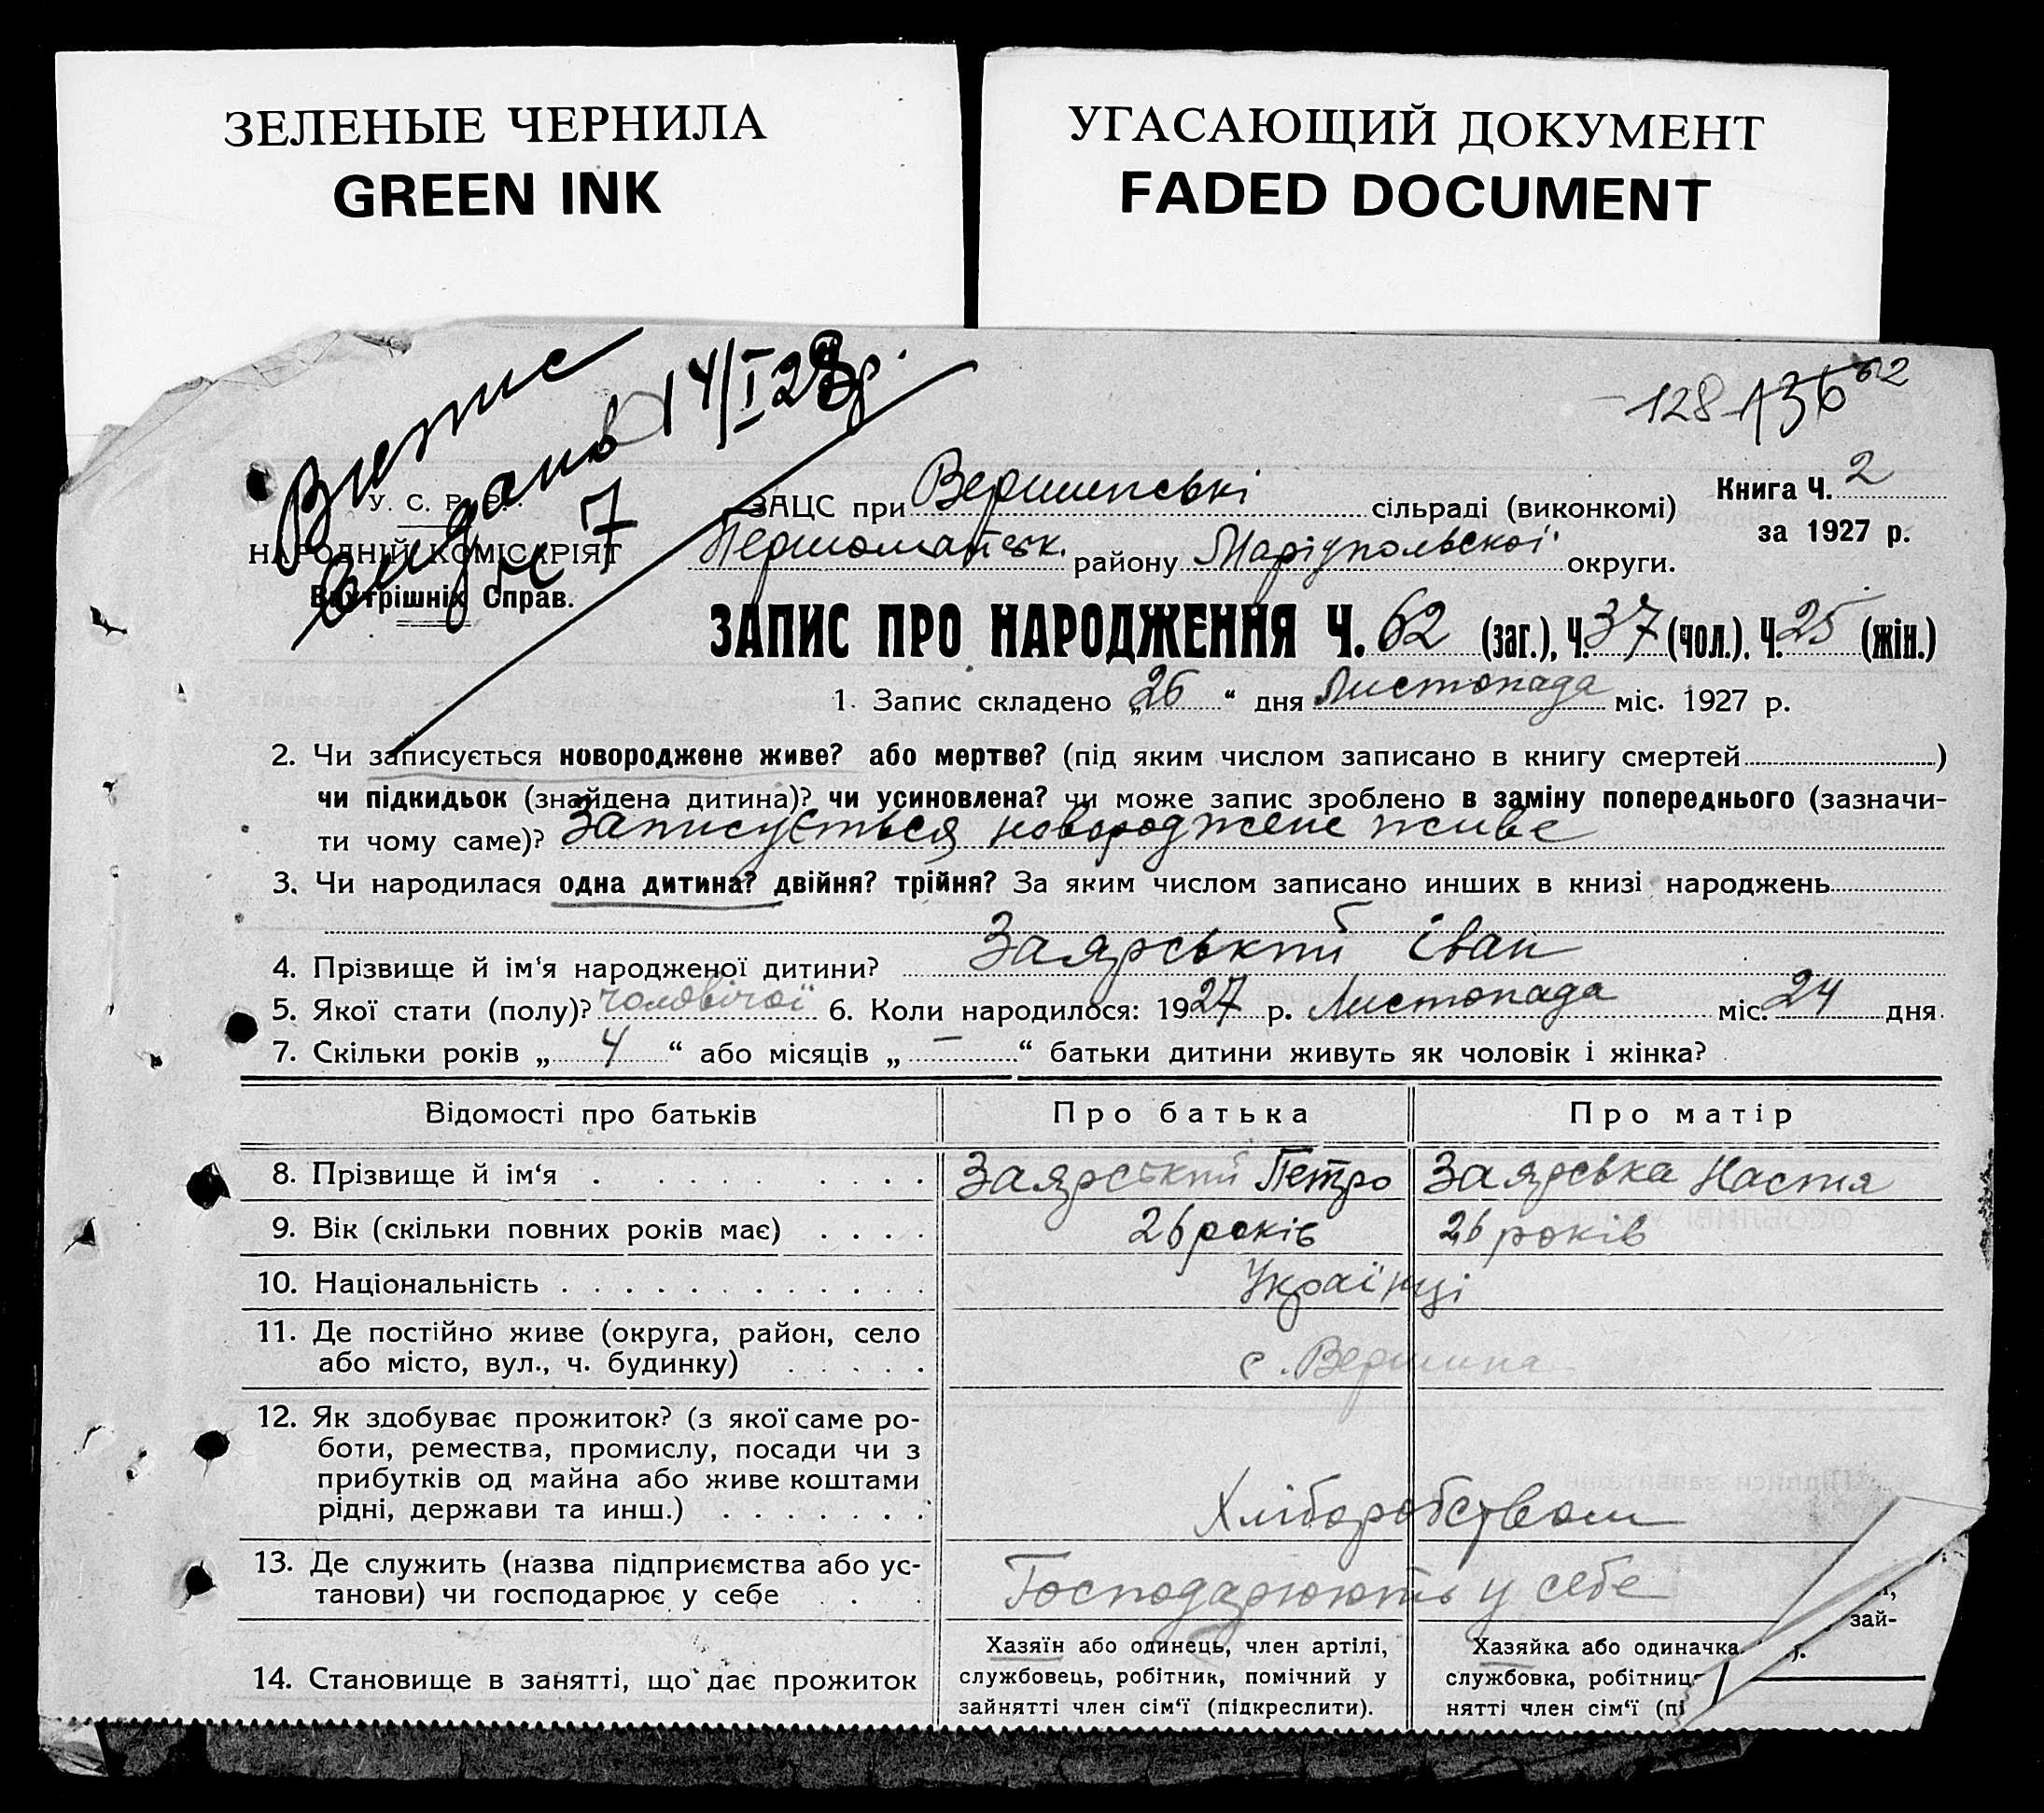 ЗЕЛЕНЫЕ ЧЕРНИЛА
GREEN INK
УГАСАЮЩИЙ ДОКУМЕНТ
FADED DOCUMENT
Витис
видано 14/I 28р.
№ 7
128 136 62
У. С. Р. Р.
НАРОДНІЙ КОМІСАРІЯТ
Внутрішніх Справ.
ЗАЦС при Вершинські сільраді (виконкомі)
Першомайськ. району Маріупольської округи.
Книга Ч. 2
за 1927 р.
ЗАПИС ПРО НАРОДЖЕННЯ Ч. 62 (заг.), Ч. 37 (чол.), Ч. 25 (жін.)
1. Запис складено „26“ дня Листопада міс. 1927 р.
2. Чи записується новороджене живе? або мертве? (під яким числом записано в книгу смертей)
чи підкидьок (знайдена дитина)? чи усиновлена? чи може запис зроблено в заміну попереднього (зазначи-
ти чому саме)? Записується новороджене живе
3. Чи народилася одна дитина? двійня? трійня? За яким числом записано инших в книзі народжень
4. Прізвище й ім‘я народженої дитини? Заярський Іван
5. Якої стати (полу)? чоловічої 6. Коли народилося: 1927 р. Листопада міс. 24 дня
7. Скільки років „4“ або місяців „—“ батьки дитини живуть як чоловік і жінка?
Відомості про батьків Про батька Про матір
8. Прізвище й ім‘я Заярський Петро Заярська Настя
9. Вік (скільки повних років має) 26 років 26 років
10. Національність Українці
11. Де постійно живе (округа, район, село
або місто, вул., ч. будинку) с. Вершина
12. Як здобуває прожиток? (з якої саме ро-
боти, ремества, промислу, посади чи з
прибутків од майна або живе коштами
рідні, держави та инш.) Хліборобством
13. Де служить (назва підприємства або ус-
танови) чи господарює у себе Господарюють у себе
14. Становище в занятті, що дає прожиток
Хазяїн або одинець, член артілі,
службовець, робітник, помічний у
зайнятті член сім‘ї (підкреслити).
Хазяйка або одиначка
службовка, робітниця
нятті член сім‘ї (пі
зай-